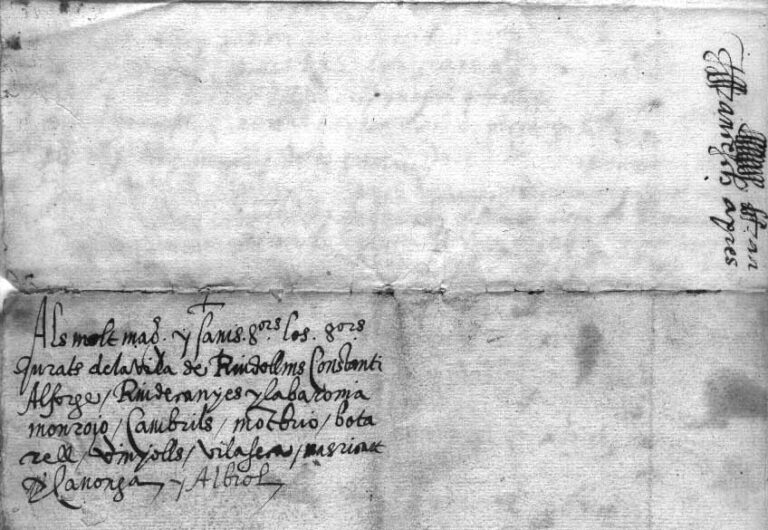 Als molt mag. y savis. sors los. sors.
Jurats dela vila de Riudollms Constanti
Alforge / Riudecanyes y la baronia
monroio / Cambrils / motbrio / bota
rell / vinyolls / vilaseca / masricart
Canonga y Albiol
ffran
ffrancesch ayres